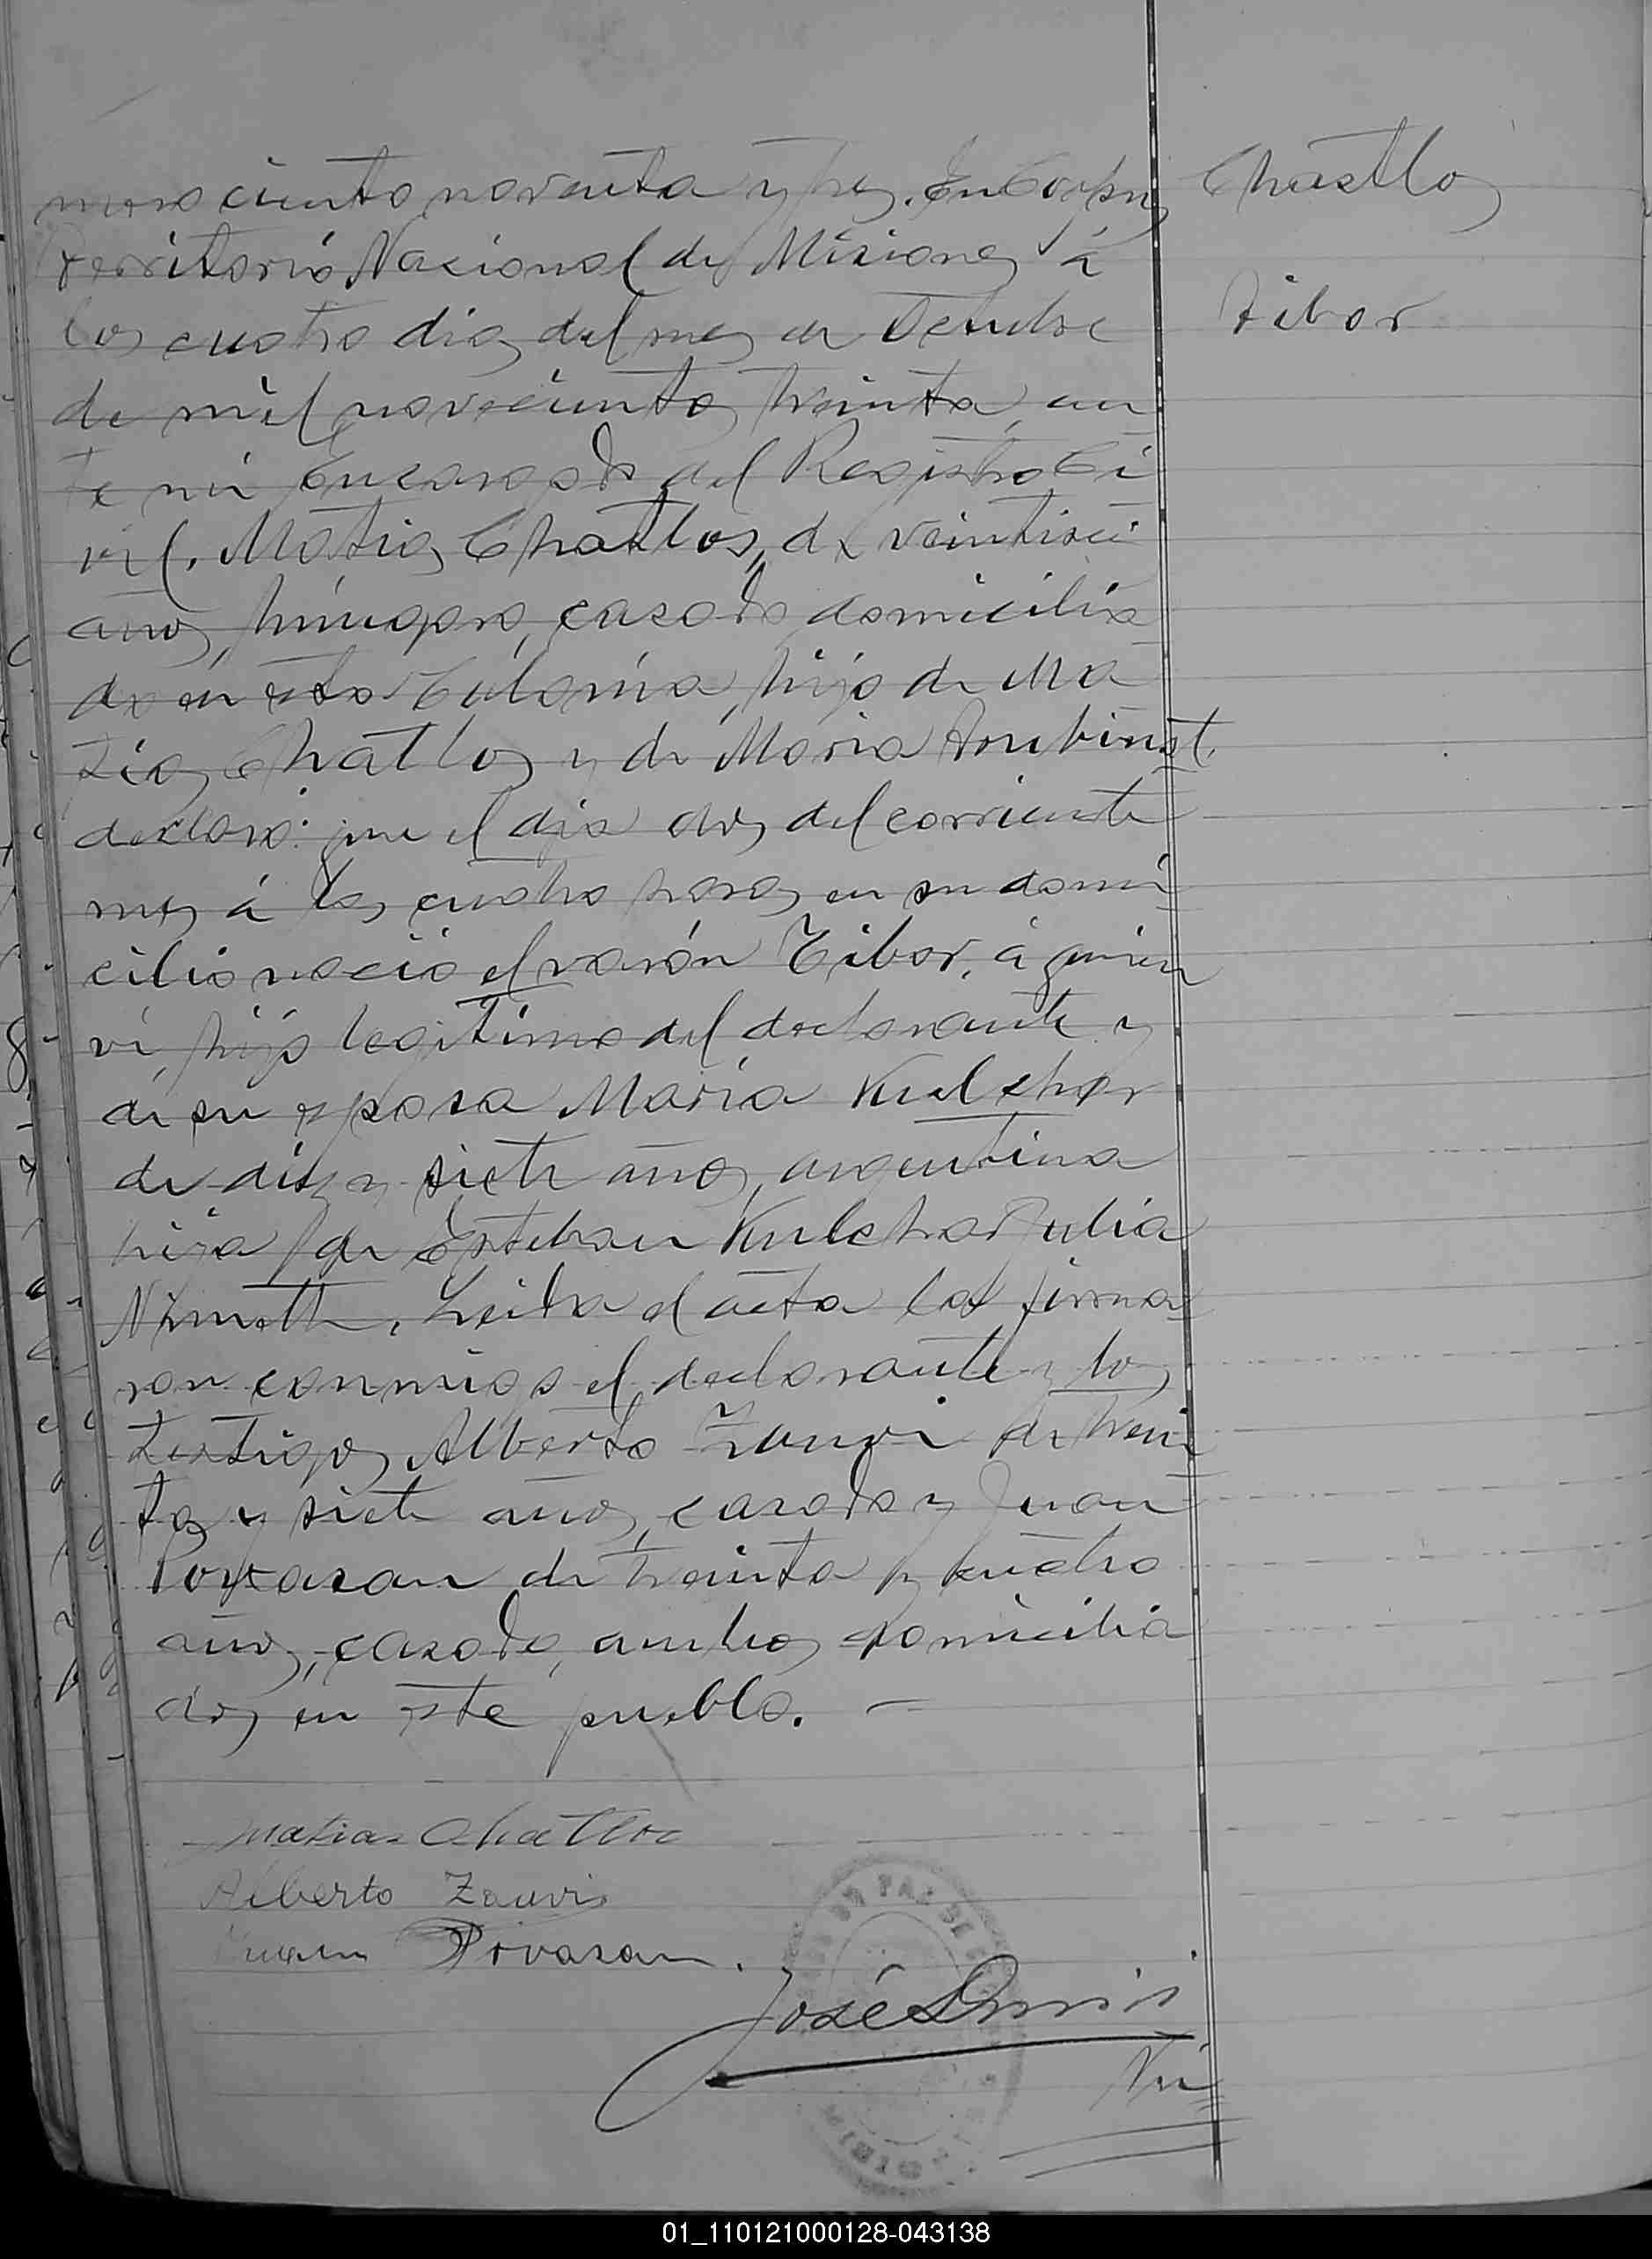 mero ciento noventa y tres. En Corpus
Territorio Nacional de Misiones á
los cuatro dias del mes de Octubre
de mil novecientos treinta, an
te mi Encargado del Registro Ci
vil. Matias Chatlos, de veintiseis
años, húngaro, casado domicilia
do en esta Colonia, hijo de Ma
tias Chatlos y de Maria
declaró: que el dia dos del corriente
mes á las cuatro horas en su domi
cilio nació el varón Tibor, á quien
vi, hijo legitimo del declarante y
de su esposa Maria Kulchar
de diez y siete años, argentina
hija de Esteban Kulchar Julia
Nimeth. Leida el acta la firma
ron conmigo el declarante y los
testigos Alberto Zauri de trein
ta y siete años, casado y Juan
de treinta y cuatro
años, casado, ambos domicilia
dos en este pueblo. —
Matias Chatlos
Alberto Zauri
Juan Provasan.
José
Nú
Chastlos
Tibor
01_110121000128-043138